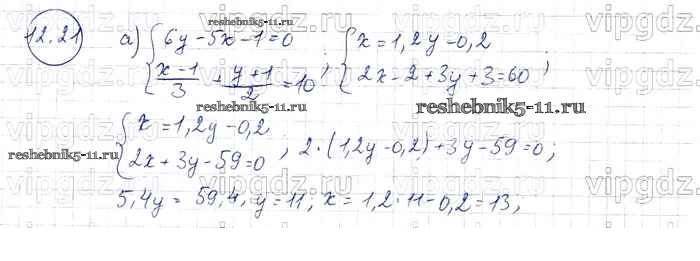 12.21 а) { 6y - 5x - 1 = 0 ; { x = 1,2y - 0,2 ;
(x-1)/3 + (y+1)/2 = 10 2x - 2 + 3y + 3 = 60
{ x = 1,2y - 0,2
2x + 3y - 59 = 0 , 2·(1,2y - 0,2) + 3y - 59 = 0;
5,4y = 59,4, y = 11; x = 1,2·11 - 0,2 = 13;
reshebnik5-11.ru
reshebnik5-11.ru
reshebnik5-11.ru
reshebnik5-11.ru
vipgdz.ru